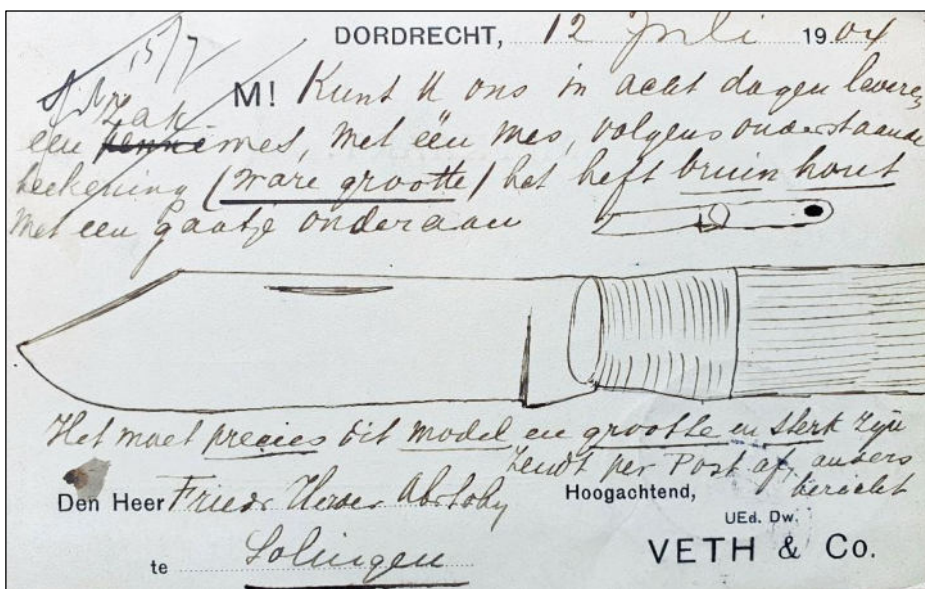 DORDRECHT, 12 Juli 1904
15/7
M! Kunt U ons in acht dagen leveren
Zak
een pennemes, met één mes, volgens onderstaande
teekening (ware grootte) het heft bruin hout
met een gaatje onderaan
Het moet precies dit model en grootte en sterk zijn
Zendt per Post af, anders
bericht
Den Heer Friedr Herder Abr Sohn
Hoogachtend,
UEd. Dw.
te Solingen
VETH & Co.